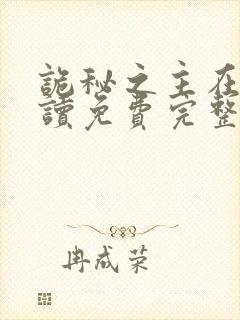 詭秘之主在
讀免費完整
冉成荣